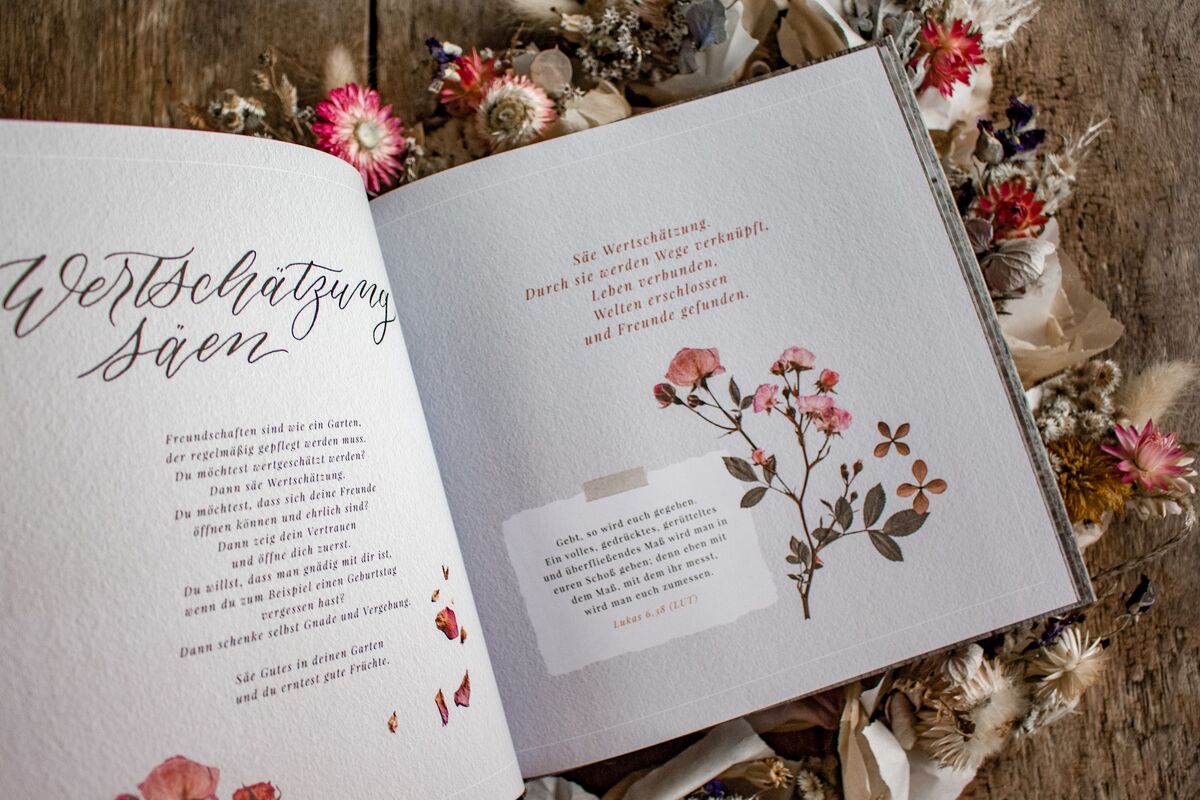 Wertschätzung
säen
Freundschaften sind wie ein Garten,
der regelmäßig gepflegt werden muss.
Du möchtest wertgeschätzt werden?
Dann säe Wertschätzung.
Du möchtest, dass sich deine Freunde
öffnen können und ehrlich sind?
Dann zeig dein Vertrauen
und öffne dich zuerst.
Du willst, dass man gnädig mit dir ist,
wenn du zum Beispiel einen Geburtstag
vergessen hast?
Dann schenke selbst Gnade und Vergebung.
Säe Gutes in deinen Garten
und du erntest gute Früchte.
Säe Wertschätzung.
Durch sie werden Wege verknüpft,
Leben verbunden,
Welten erschlossen
und Freunde gefunden.
Gebt, so wird euch gegeben.
Ein volles, gedrücktes, gerütteltes
und überfließendes Maß wird man in
euren Schoß geben; denn eben mit
dem Maß, mit dem ihr messt,
wird man euch zumessen.
Lukas 6,38 (LUT)